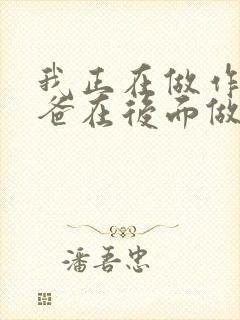 我正在做作
爸在後而做
潘吾忠